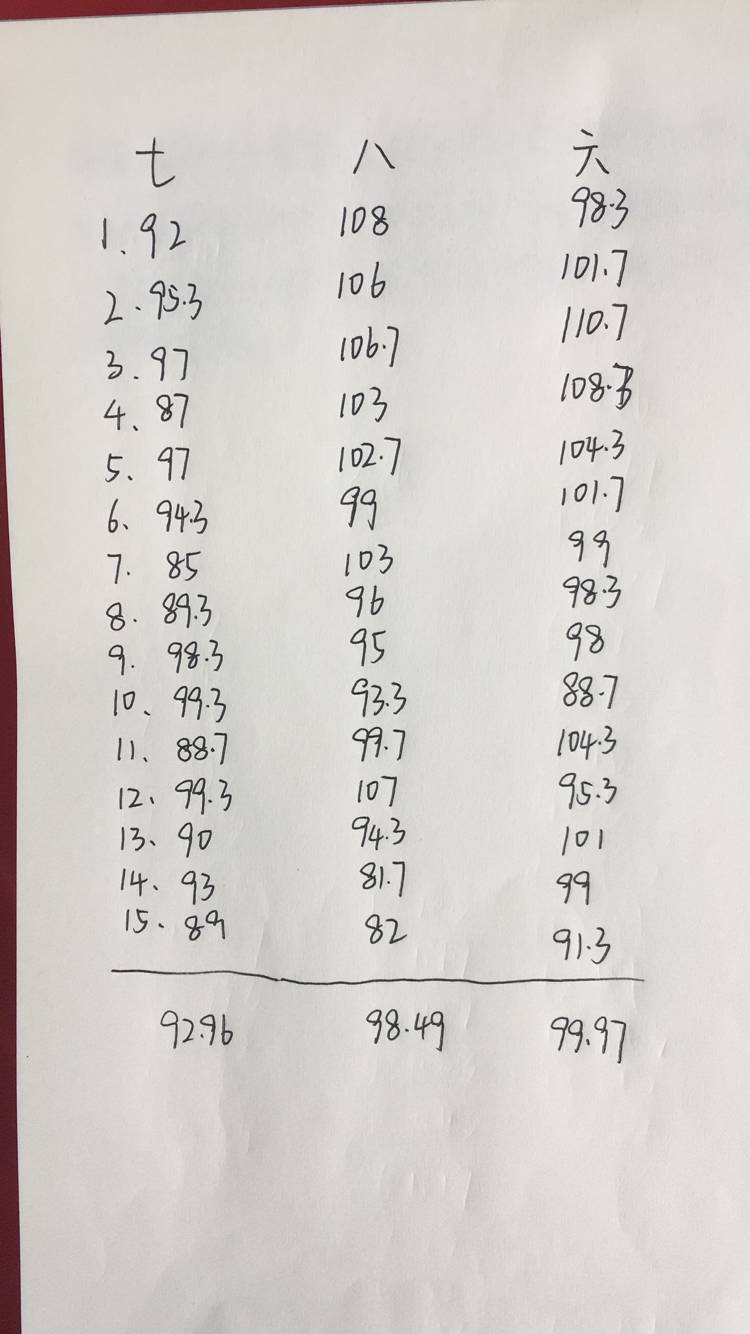 七 八 六
1. 92 108 98.3
2. 95.3 106 101.7
3. 97 106.7 110.7
4、87 103 108.3
5、97 102.7 104.3
6、94.3 99 101.7
7. 85 103 99
8. 89.3 96 98.3
9. 98.3 95 98
10、99.3 93.3 88.7
11、88.7 99.7 104.3
12、99.3 107 95.3
13、90 94.3 101
14、93 81.7 99
15、89 82 91.3
92.96 98.49 99.97